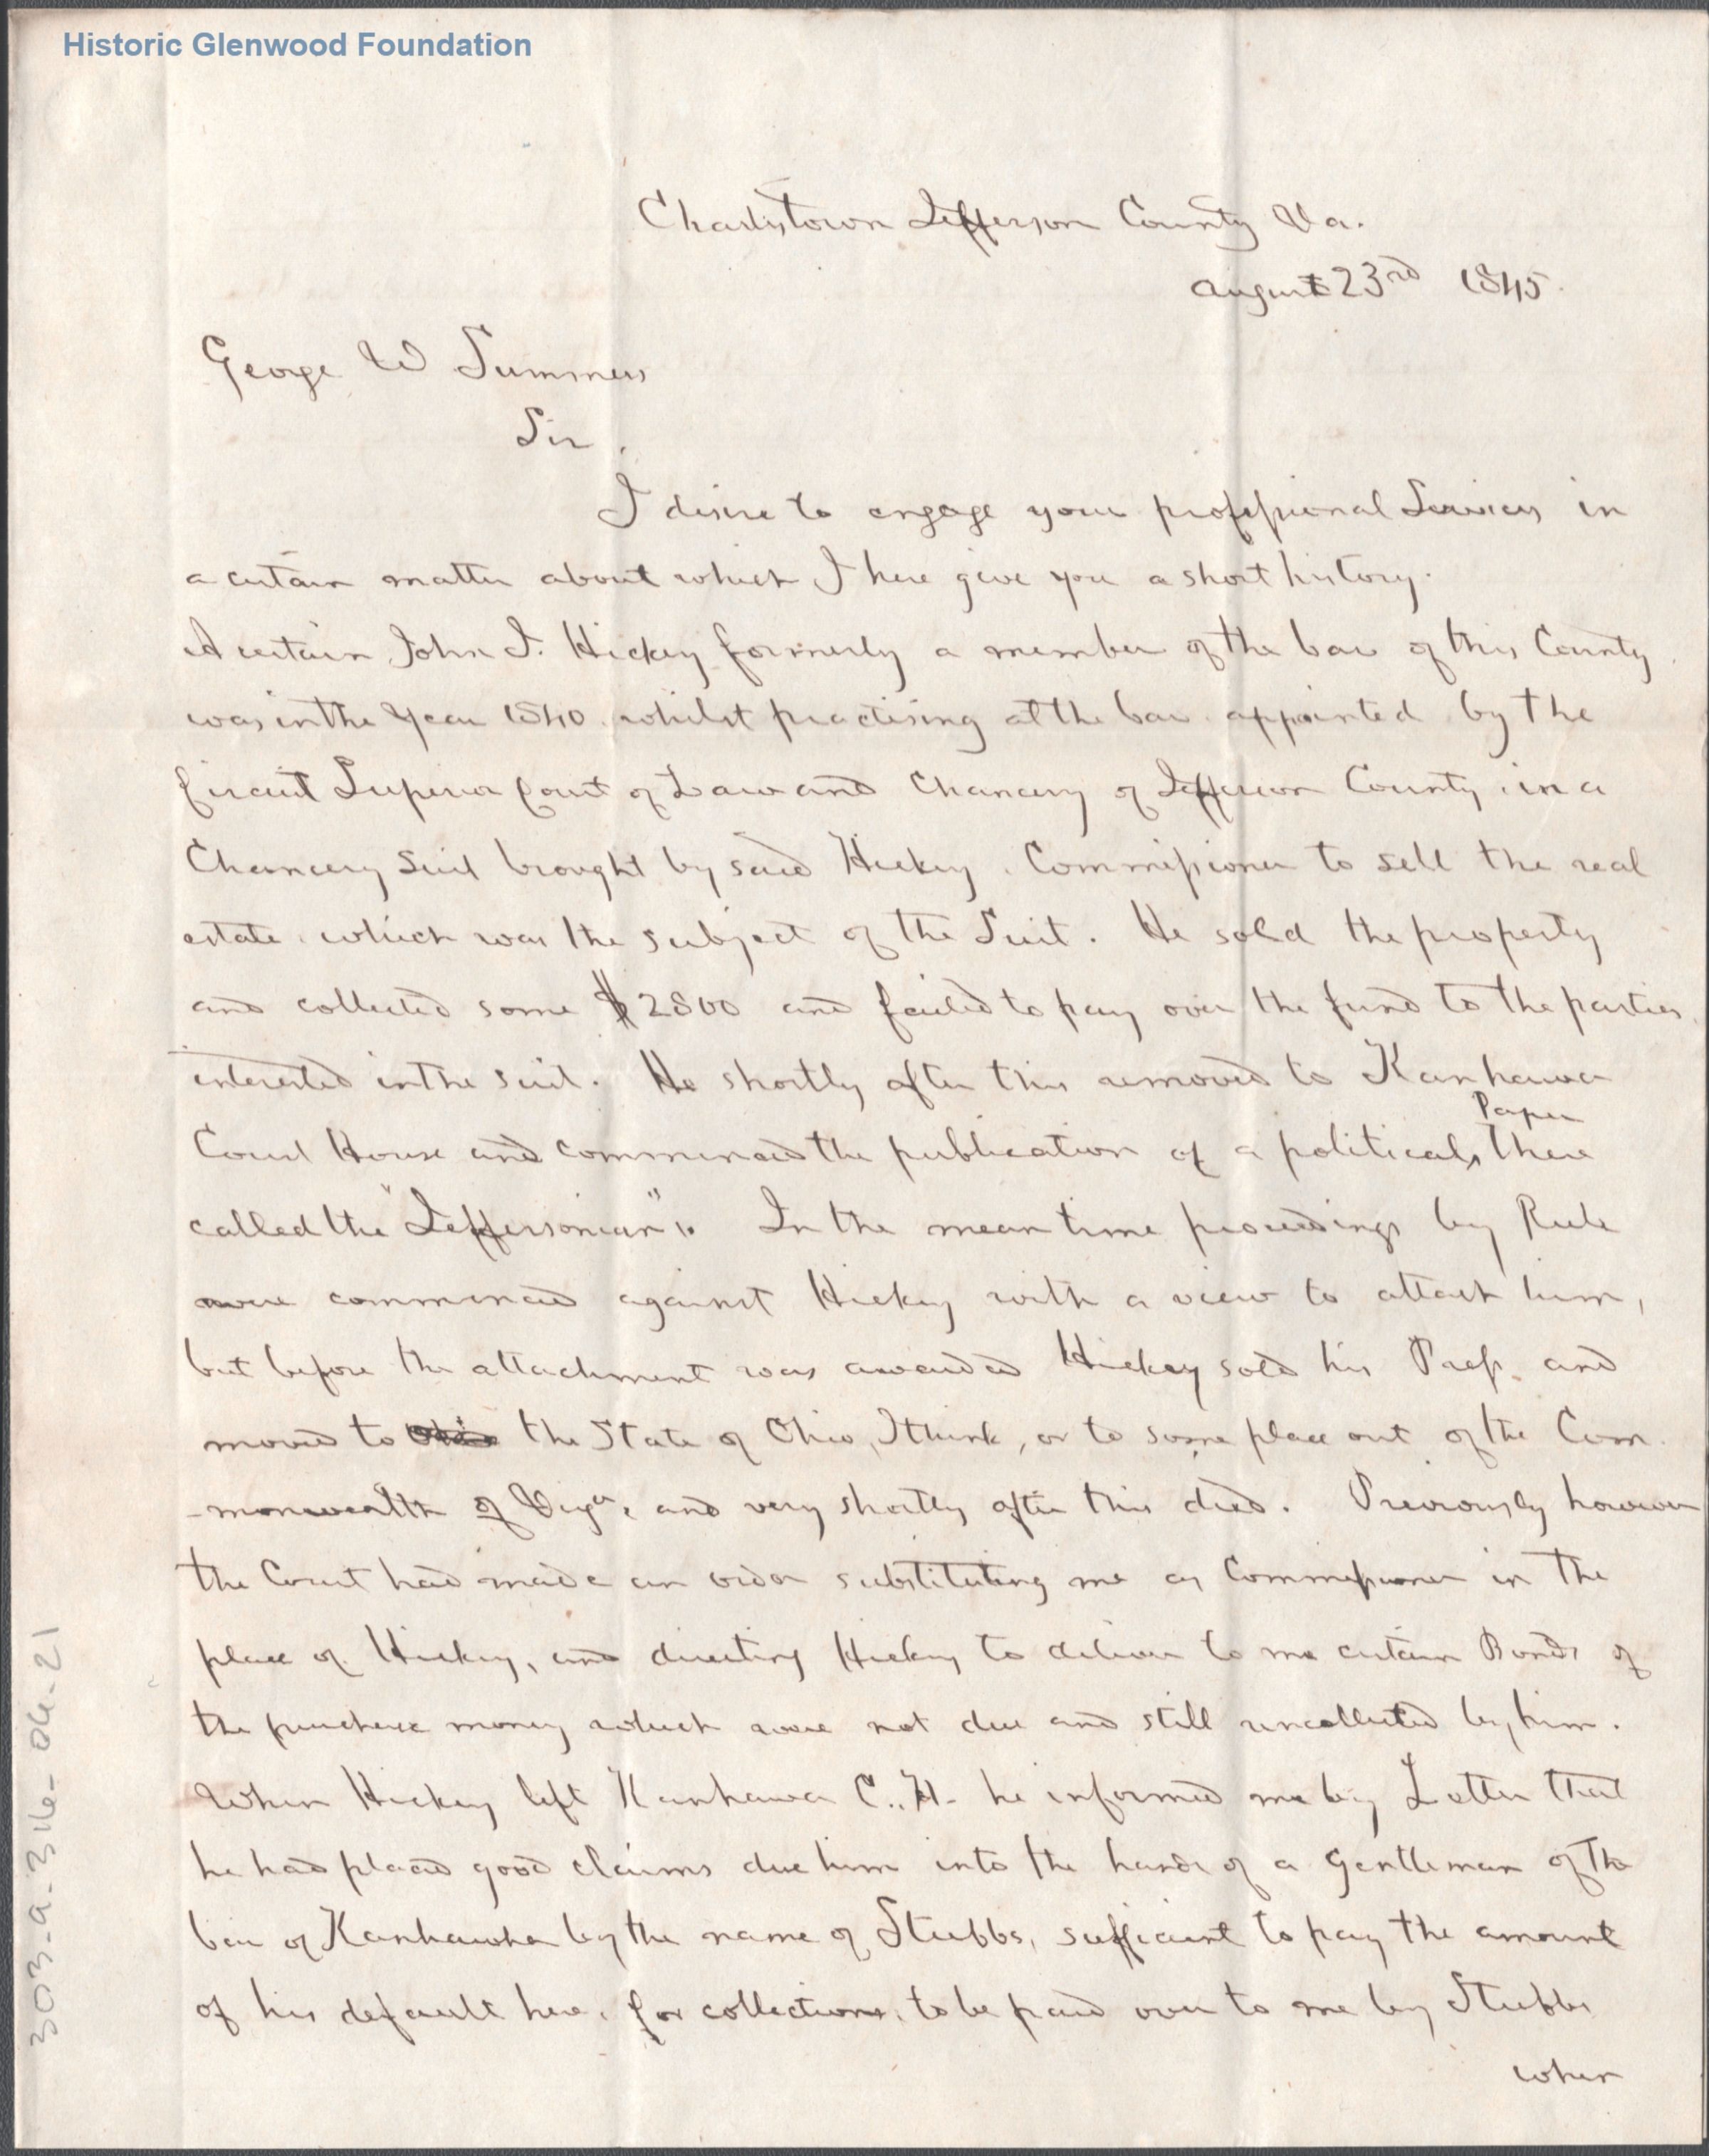 Historic Glenwood Foundation
Charlestown Jefferson County Va.
August 23rd 1845.
George W Summers
Sir,
I desire to engage your professional Services in
a certain matter about which I here give you a short history.
A certain John I. Hickey formerly a member of the bar of this County
was in the year 1840. whilst practising at the bar appointed by the
Circuit Superior Court of Law and Chancery of Jefferson County, in a
Chancery Suit brought by said Hickey, Commissioner to sell the real
estate which was the subject of the Suit. He sold the property
and collected some $2800 and failed to pay over the fund to the parties
interested in the suit. He shortly after this removed to Kanhawa
Court House and commenced the publication of a political Paper there
called the "Jeffersonian". In the mean time proceedings by Rule
were commenced against Hickey with a view to attach him,
but before the attachment was awarded Hickey sold his Press and
moved to the State of Ohio, I think, or to some place out of the Com
-monwealth of Virga, and very shortly after this died. Previously however
the Court had made an order substituting me as Commissioner in the
place of Hickey, and directing Hickey to deliver to me certain Bonds of
the purchase money which were not due and still uncollected by him.
When Hickey left Kanhawa C.H. he informed me by Letter that
he had placed good claims due him into the hands of a Gentleman of the
bar of Kanhawha by the name of Stubbs, sufficient to pay the amount
of his default here, for collection, to be paid over to me by Stubbs
when
303-9-316-04-21